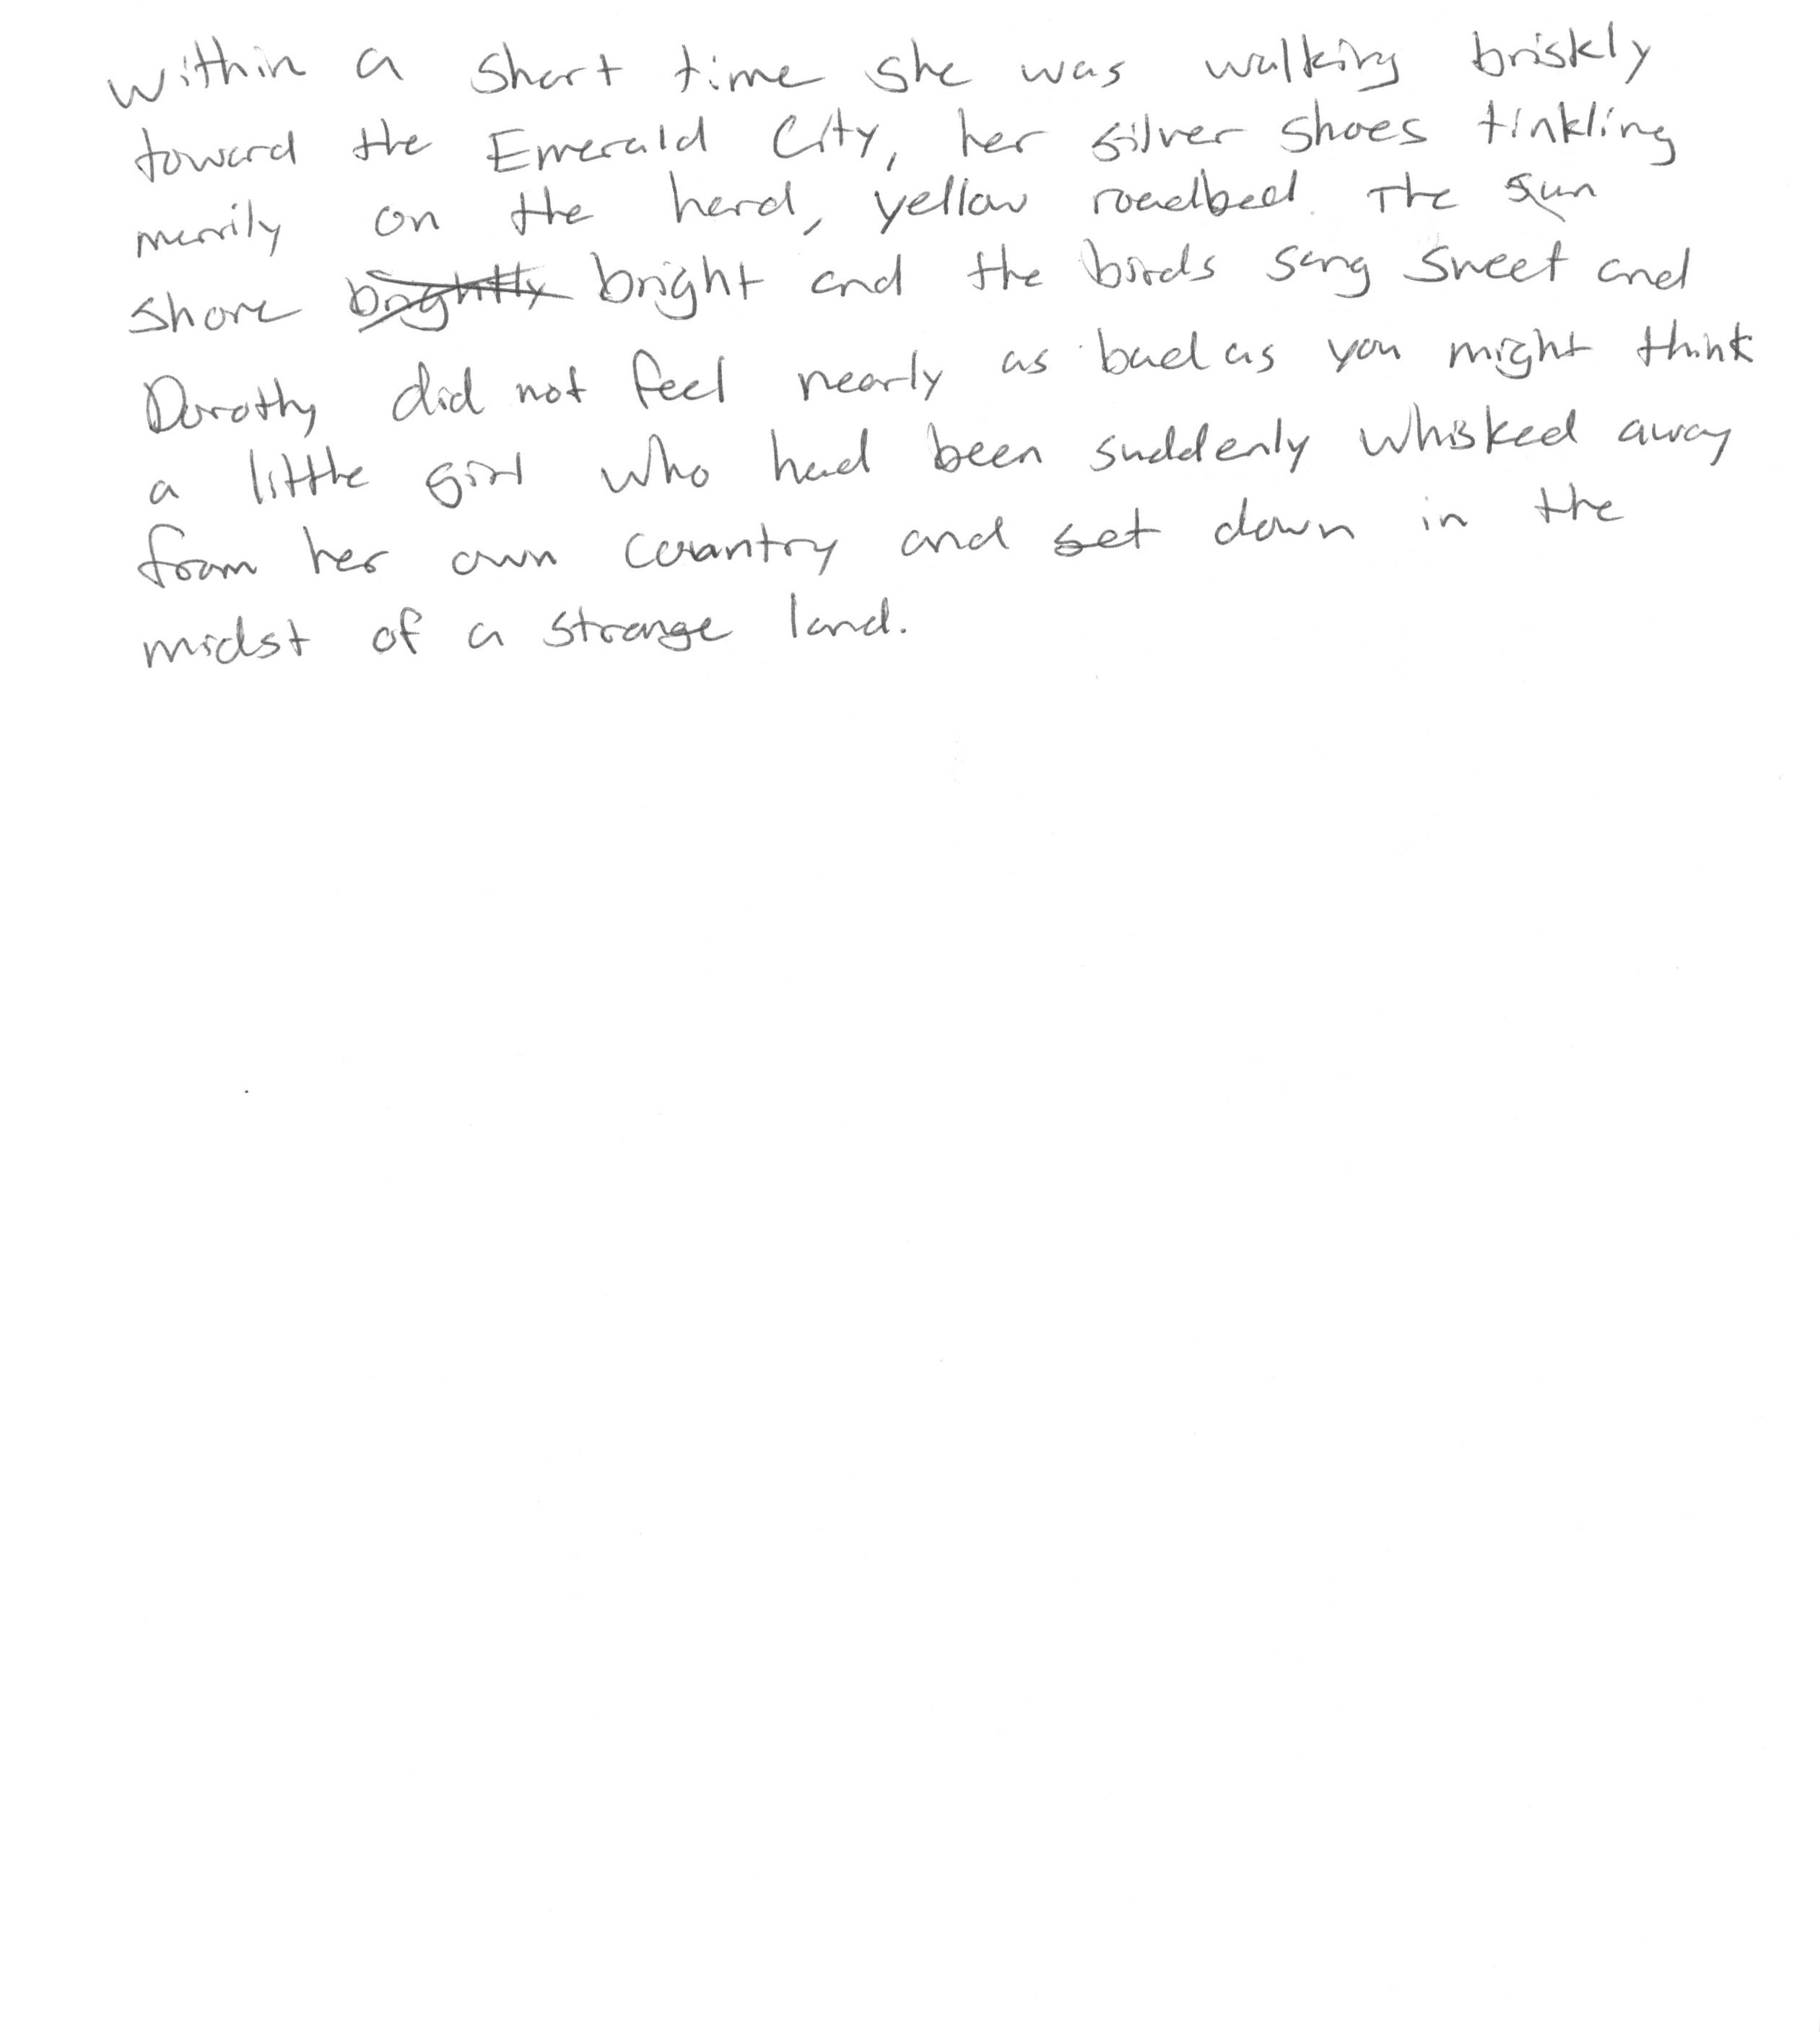 Within a short time she was walking briskly
toward the Emerald City, her silver shoes tinkling
merrily on the hard, yellow roadbed. The sun
shone brightly bright and the birds sang sweet and
Dorothy did not feel nearly as bad as you might think
a little girl who had been suddenly whisked away
from her own country and set down in the
midst of a strange land.